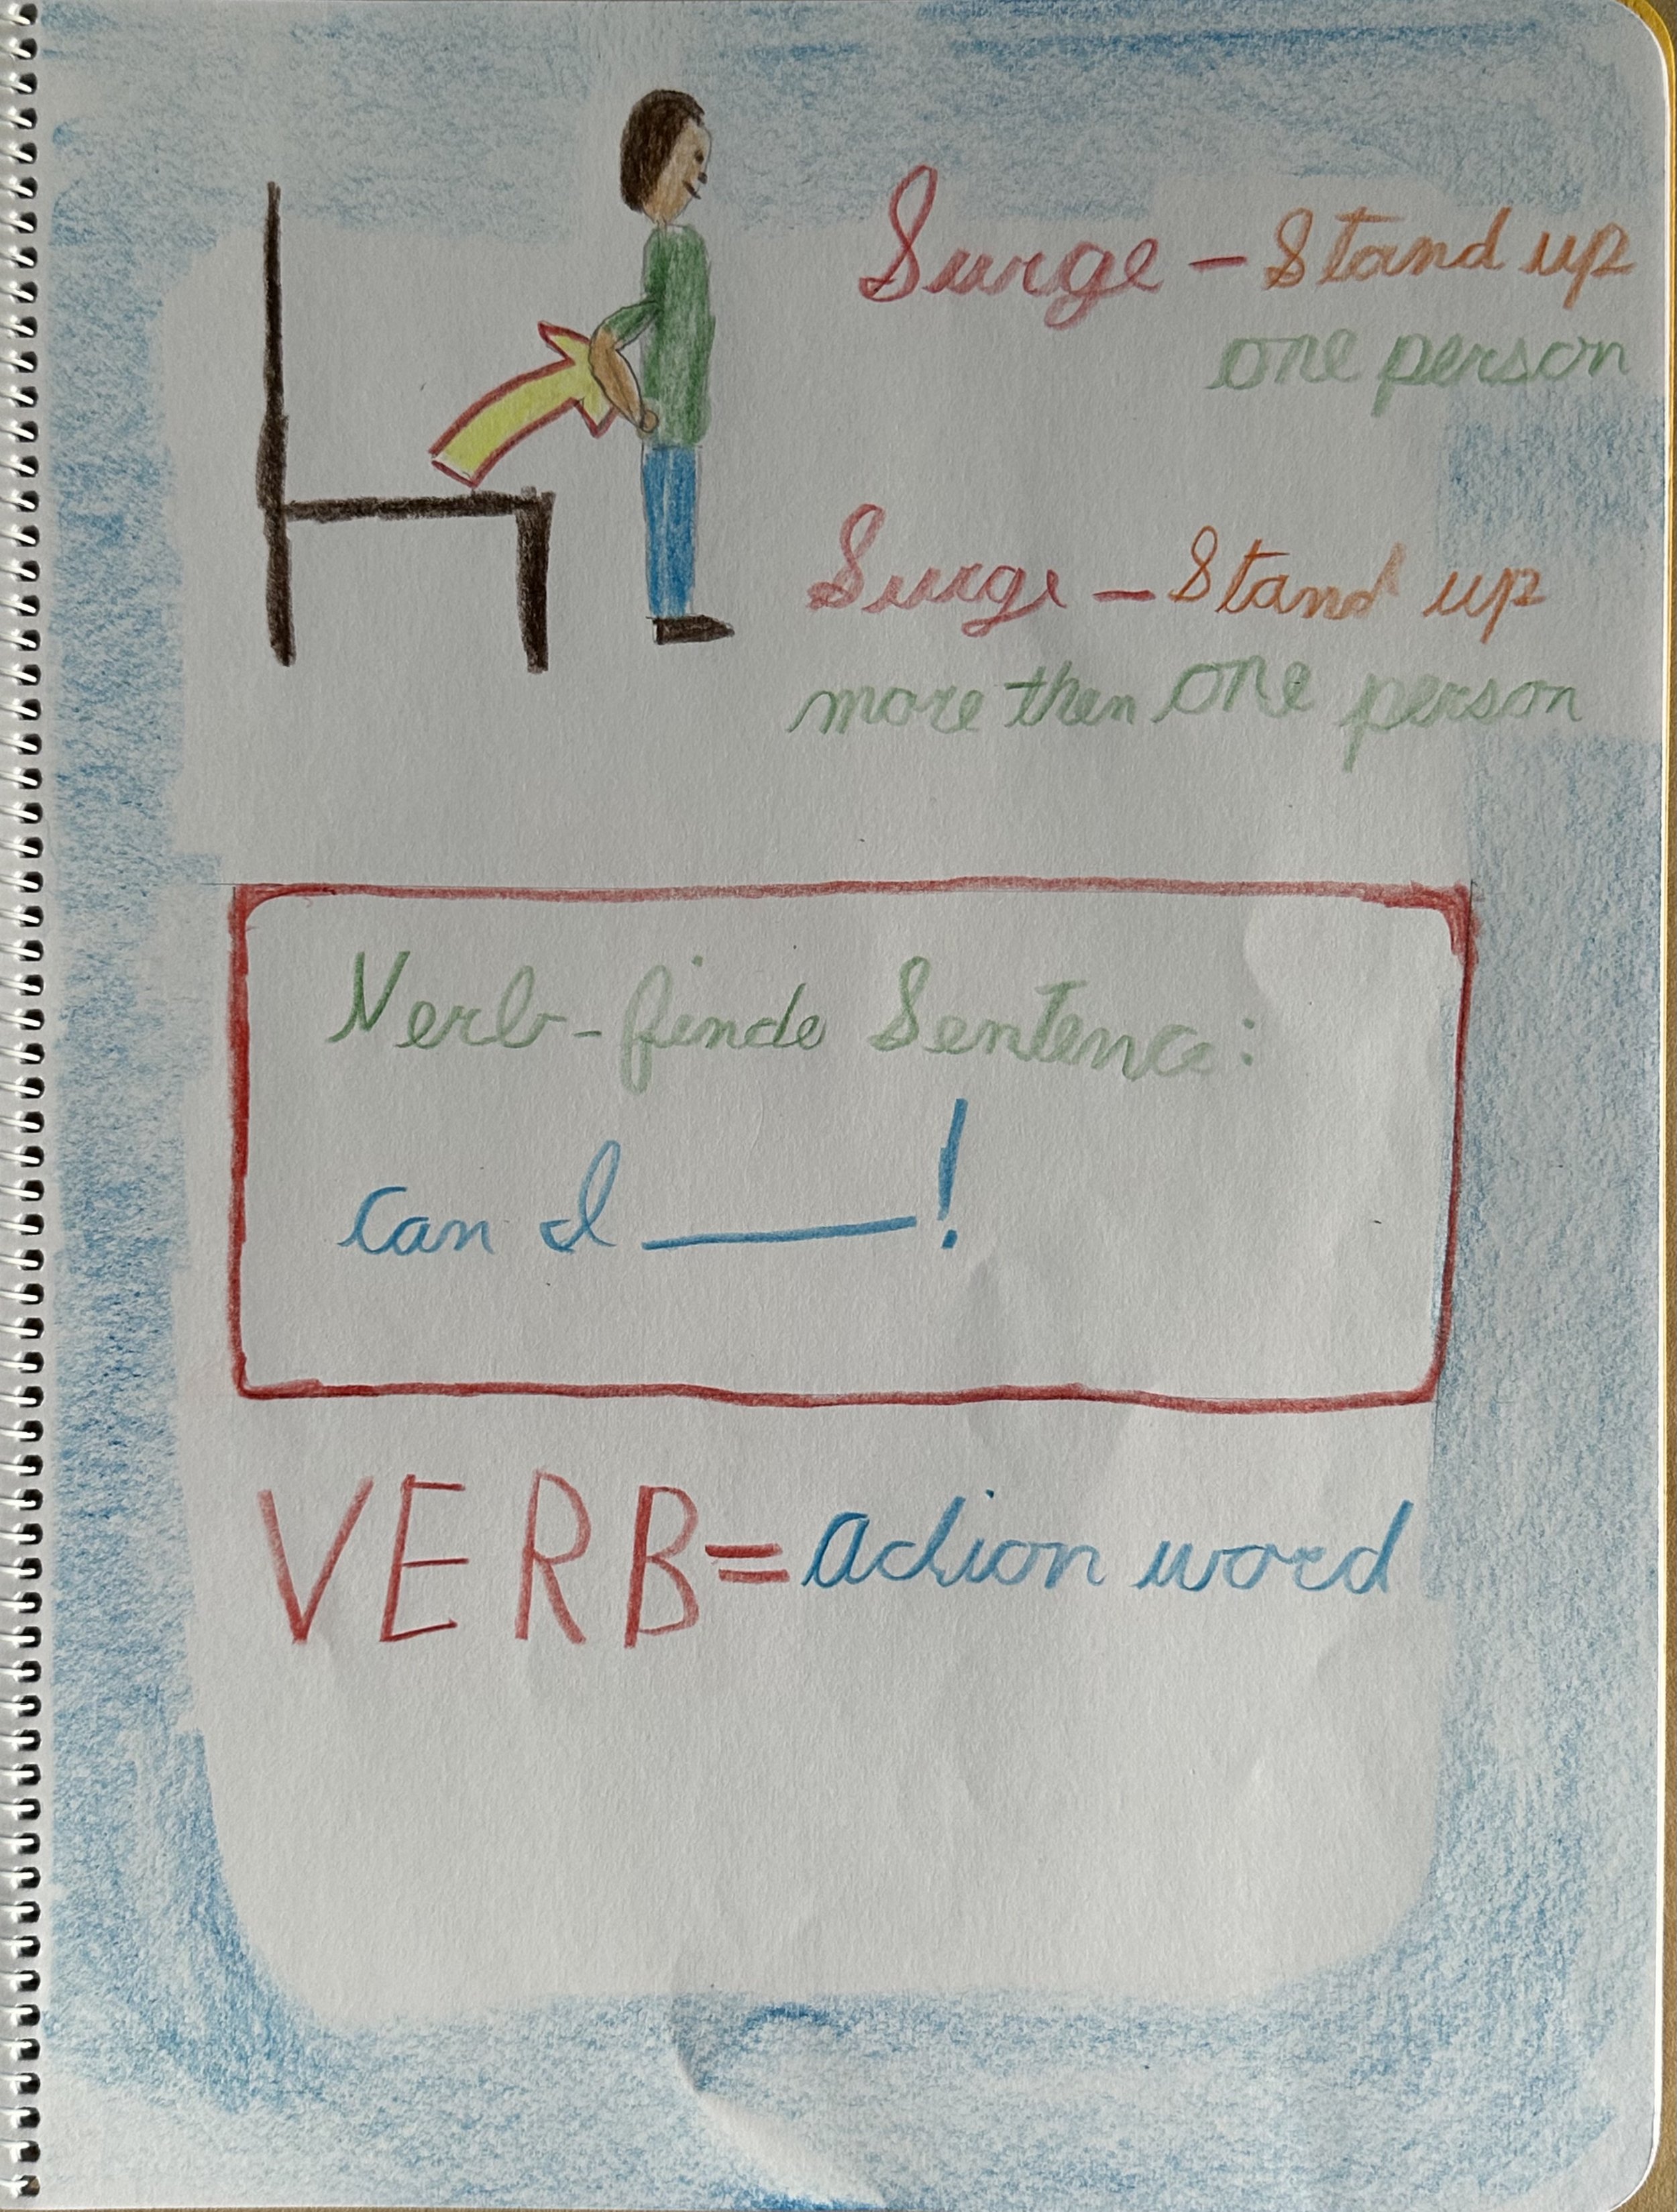 Surge - Stand up
one person
Surge - Stand up
more then one person
Verb-finde Sentence:
can I ______!
VERB = action word